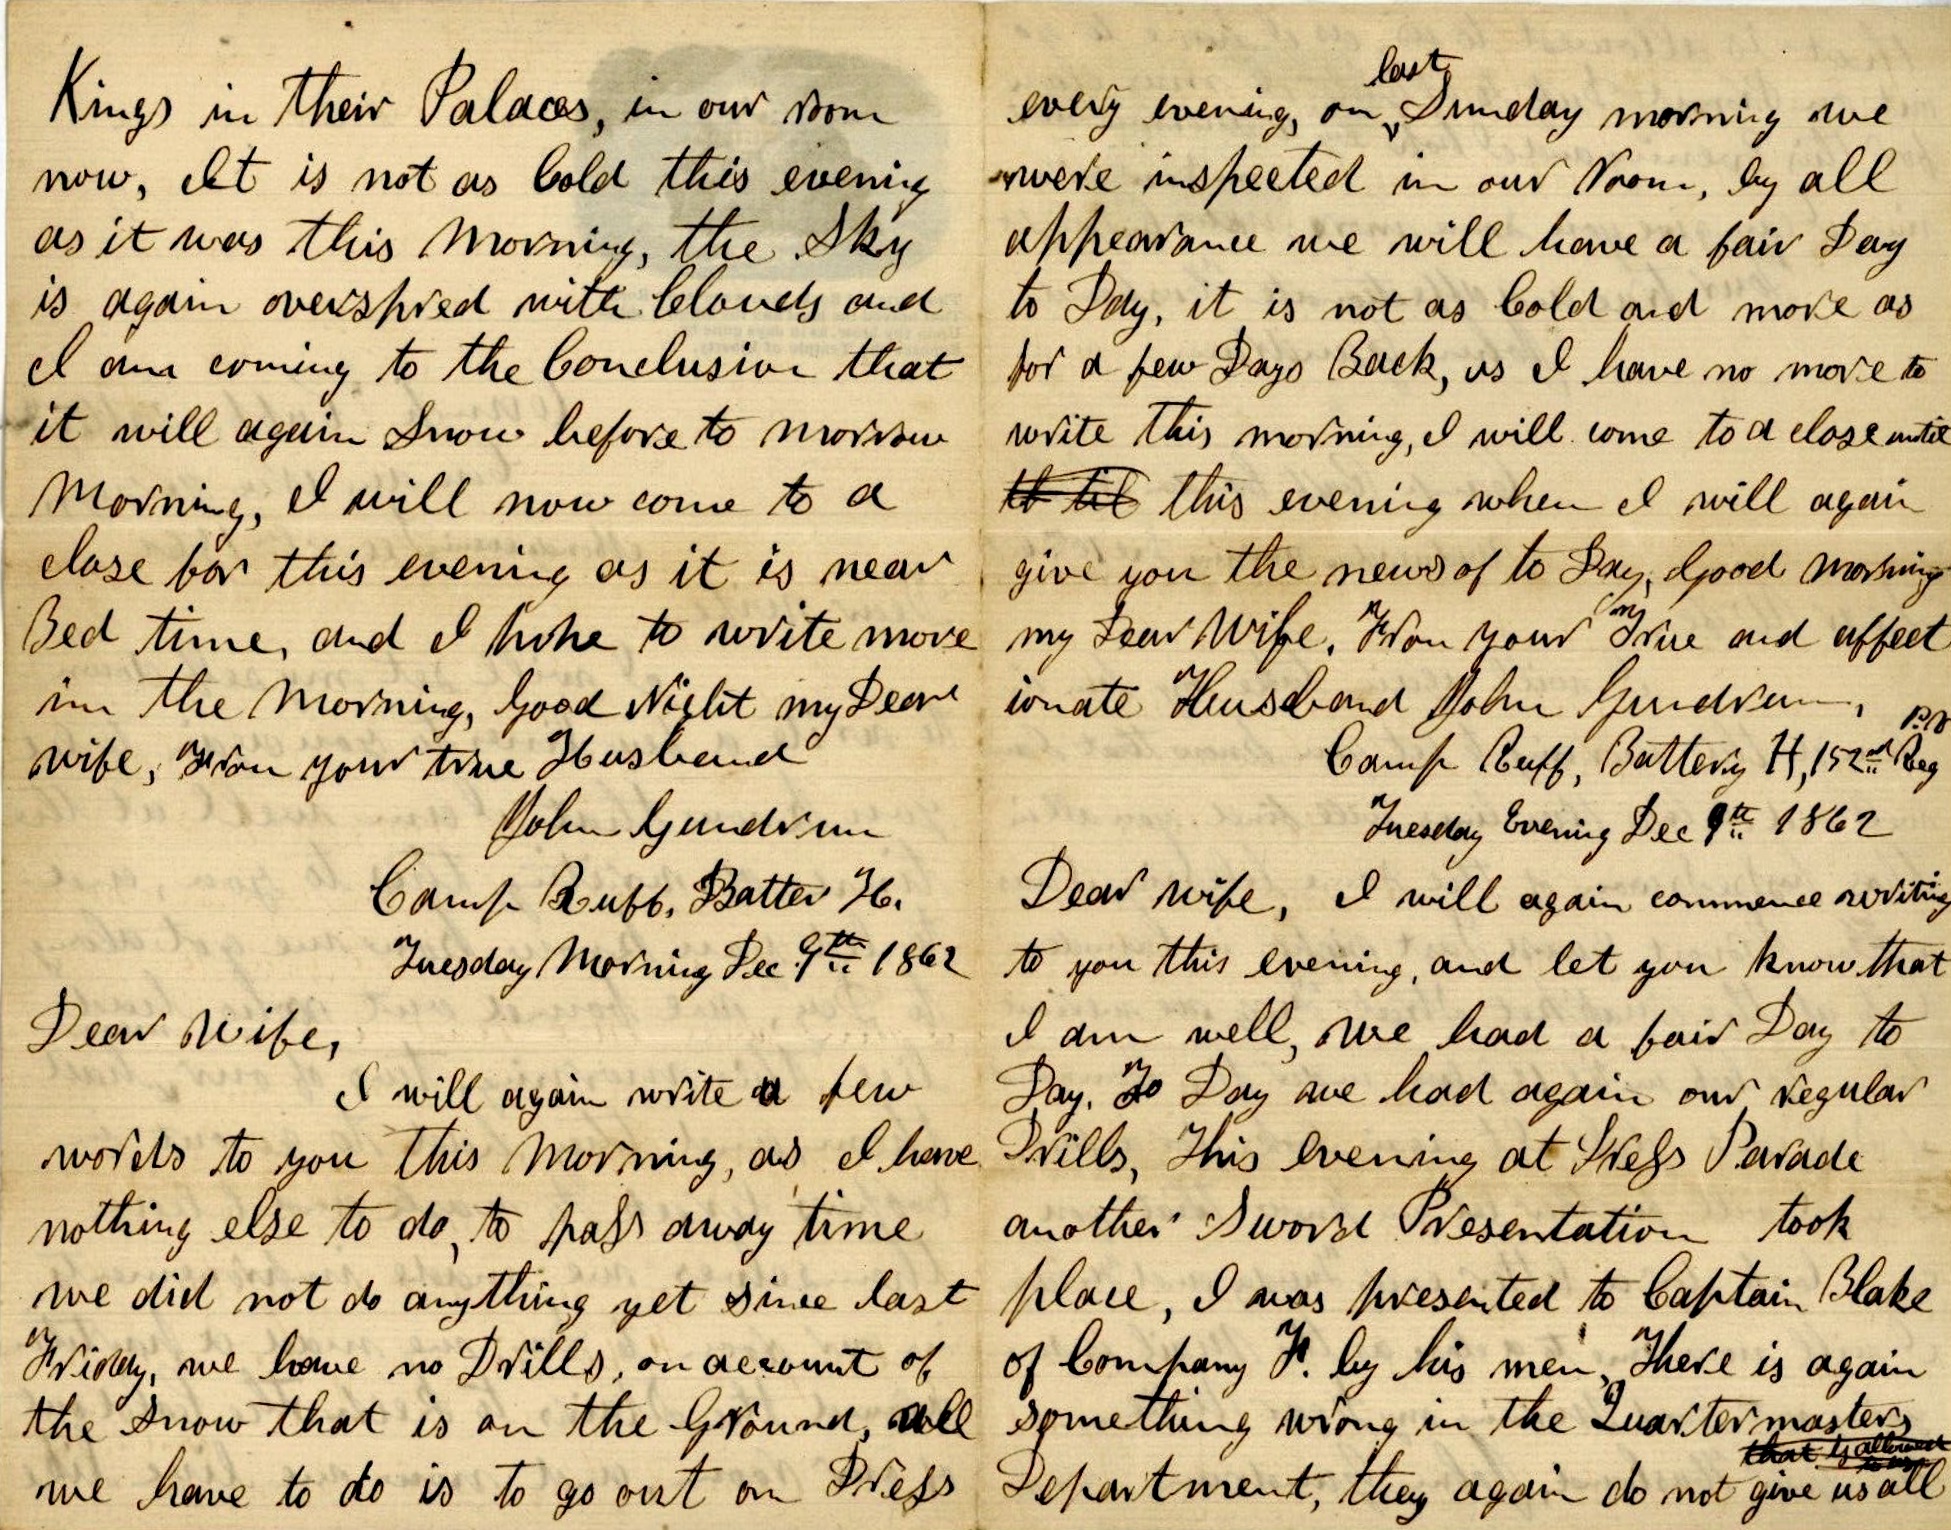 Kings in their Palaces, in our room
now, It is not as Cold this evening
as it was this Morning, the Sky
is again overspred with Clouds and
I am coming to the Conclusion that
it will again Snow before to morrow
Morning, I will now come to a
close for this evening as it is near
Bed time, and I hope to write more
in the Morning, Good Night my Dear
wife, From your true Husband
John Gundrum
Camp Ruff, Batter H.
Tuesday Morning Dec 9th 1862
Dear Wife,
I will again write a few
words to you this Morning, as I have
nothing else to do, to pass away time
we did not do anything yet since last
Friday, we have no Drills, on account of
the Snow that is on the Ground, all
we have to do is to go out on Dress
every evening, on last Sunday morning we
were inspected in our Room, by all
appearance we will have a fair Day
to Day, it is not as Cold and more as
for a few Days Back, as I have no more to
write this morning, I will come to a close until
this evening when I will again
give you the news of to Day, Good Morning
my Dear Wife, From your True and affect
ionate Husband John Gundrum,
Camp Ruff, Battery H, 152nd Reg P.V
Tuesday Evening Dec 9th 1862
Dear wife, I will again commence writing
to you this evening, and let you know that
I am well, we had a fair Day to
Day, To Day we had again our regular
Drills, This evening at Dress Parade
another Sword Presentation took
place, I was presented to Captain Blake
of Company F. by his men, There is again
something wrong in the Quartermasters
that is allowed to us
Department, they again do not give us all